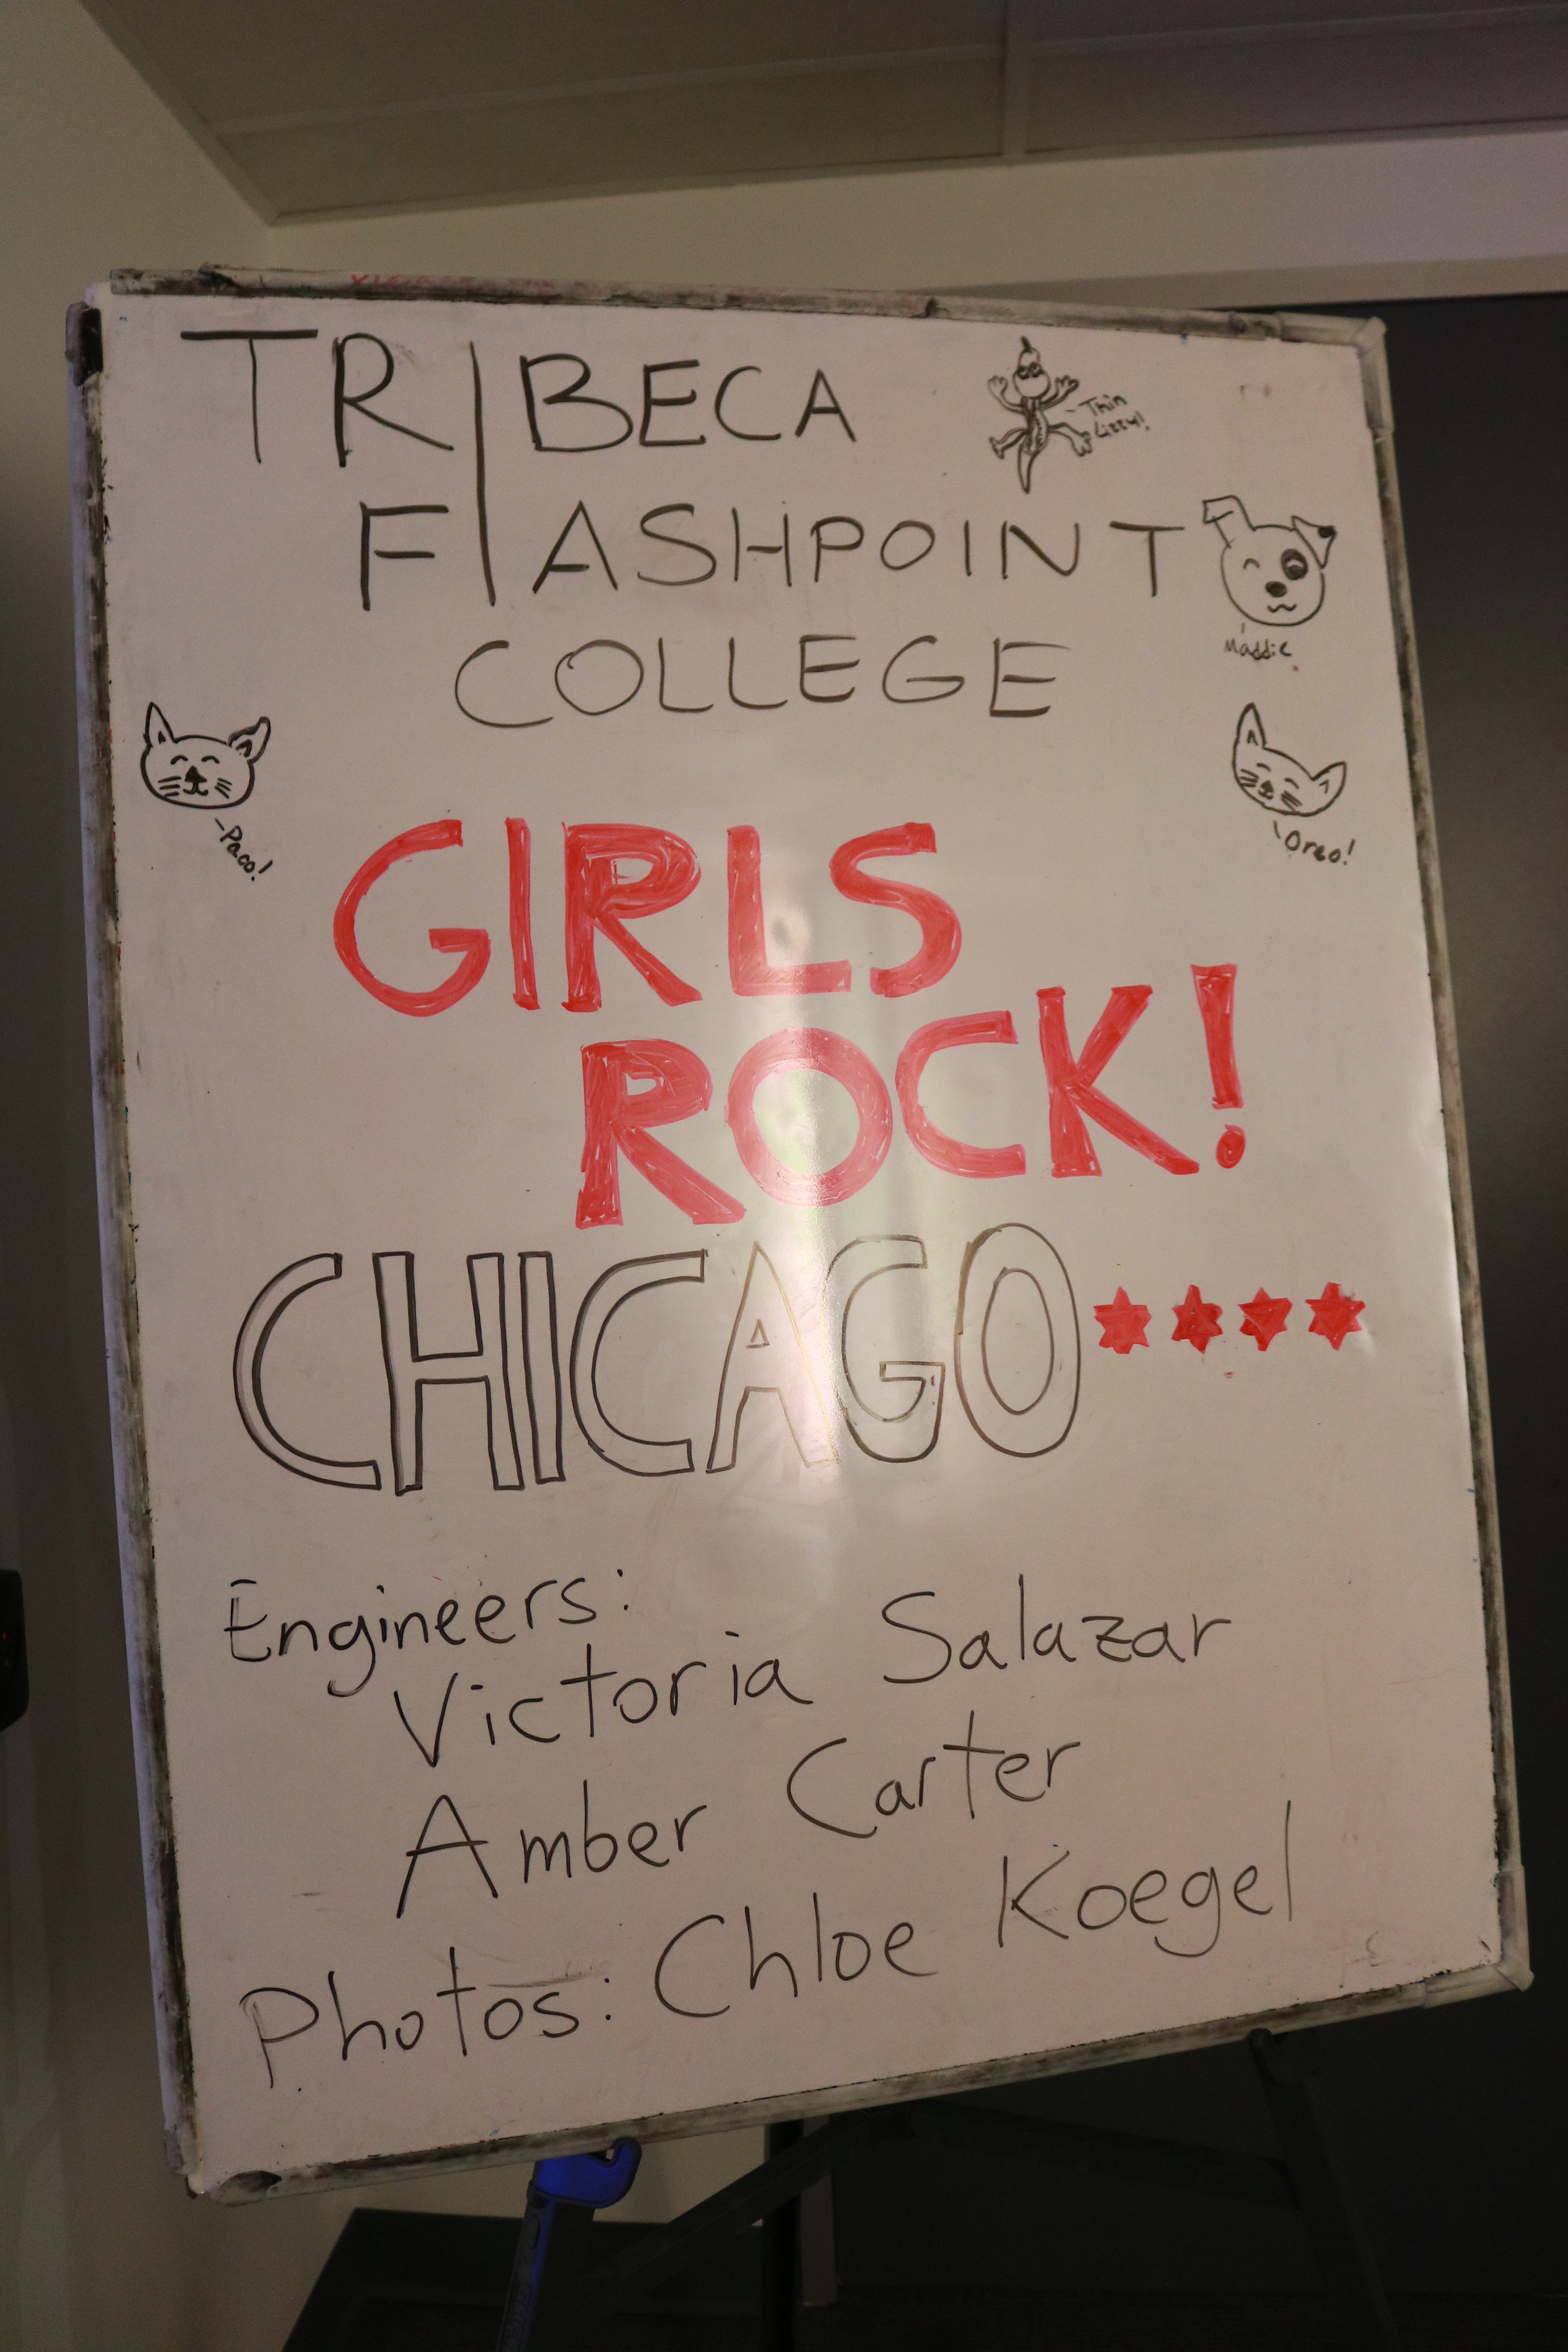 TRIBECA
Thin
Lizzy!
FLASHPOINT
Maddie
COLLEGE
-Paco!
Oreo!
GIRLS
ROCK!
CHICAGO
Engineers:
Victoria Salazar
Amber Carter
Photos: Chloe Koegel